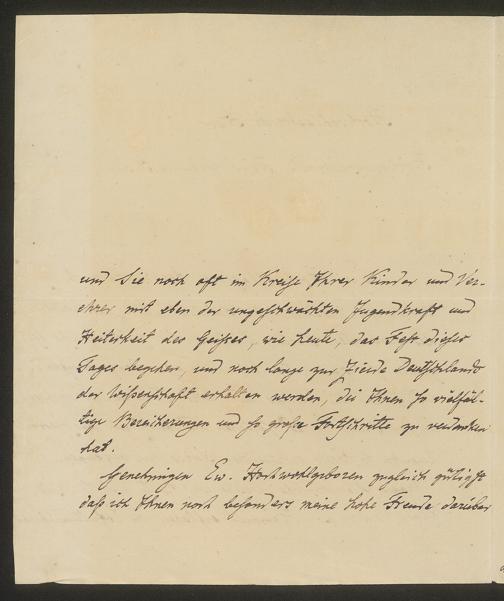 und Sie noch oft im Kreise Ihrer Kinder und Ver-
ehrer mit eben der ungeschwächten Jugendkraft und
Heiterkeit des Geistes, wie heute, das Fest dieses
Tages begehen, und noch lange zur Zierde Deutschlands
der Wissenschaft erhalten werden, die Ihnen so vielfäl-
tige Bereicherungen und so große Fortschritte zu verdanken
hat.
Genehmigen Ew. Hochwohlgeboren zugleich gütigst
daß ich Ihnen noch besonders meine hohe Freude darüber